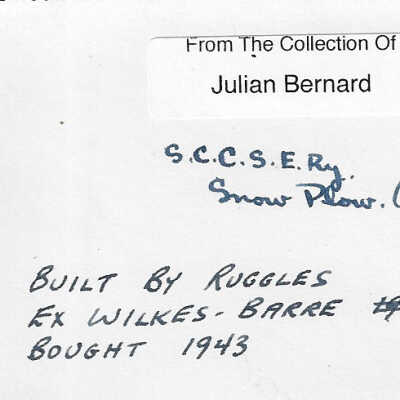 From The Collection Of
Julian Bernard
S.C.C.S.E.Ry.
Snow Plow. (
BUILT BY RUGGLES
EX WILKES-BARRE
BOUGHT 1943